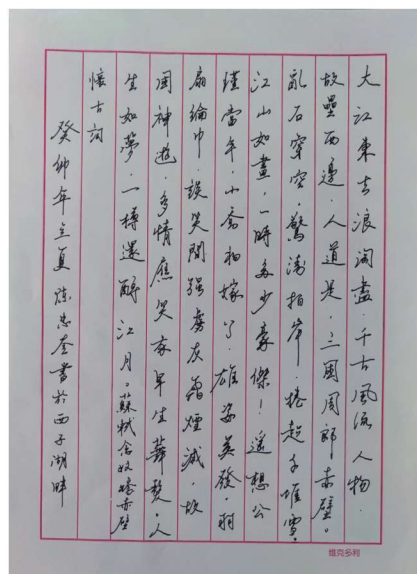 大江東去浪淘盡千古風流人物．
故壘西邊．人道是．三國周郎赤壁。
亂石穿空．驚濤拍岸．捲起千堆雪。
江山如畫．一時多少豪傑！遥想公
瑾當年．小喬初嫁了．雄姿英發．羽
扇綸巾．談笑間強虜灰飛煙滅．故
國神遊．多情應笑我早生華髮。人
生如夢．一樽還酹江月。蘇軾念奴嬌赤壁
懷古詞
癸卯年立夏陳忠奎書於西子湖畔
維克多利